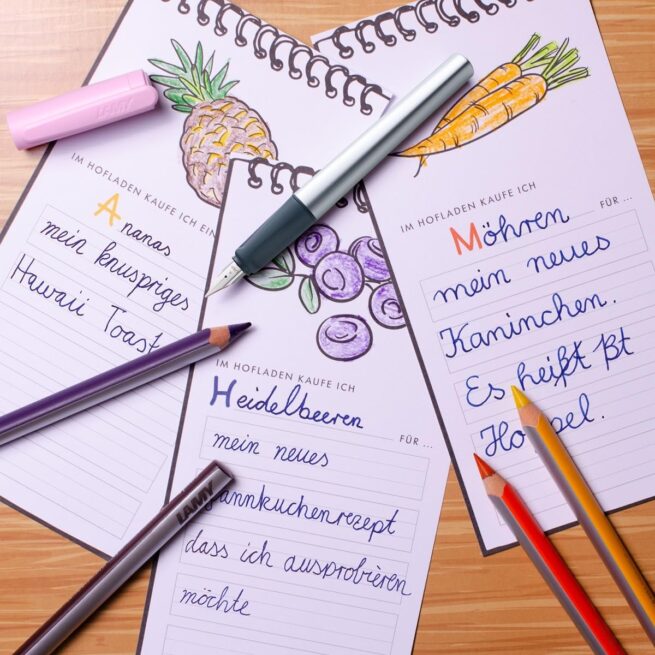 LAMY
IM HOFLADEN KAUFE ICH EIN
Ananas
mein knuspriges
Hawaii Toast
IM HOFLADEN KAUFE ICH
Heidelbeeren FÜR ...
mein neues
annkuchenrezept
dass ich ausprobieren
möchte
LAMY
IM HOFLADEN KAUFE ICH
Möhren FÜR ...
mein neues
Kaninchen.
Es heißt ßt